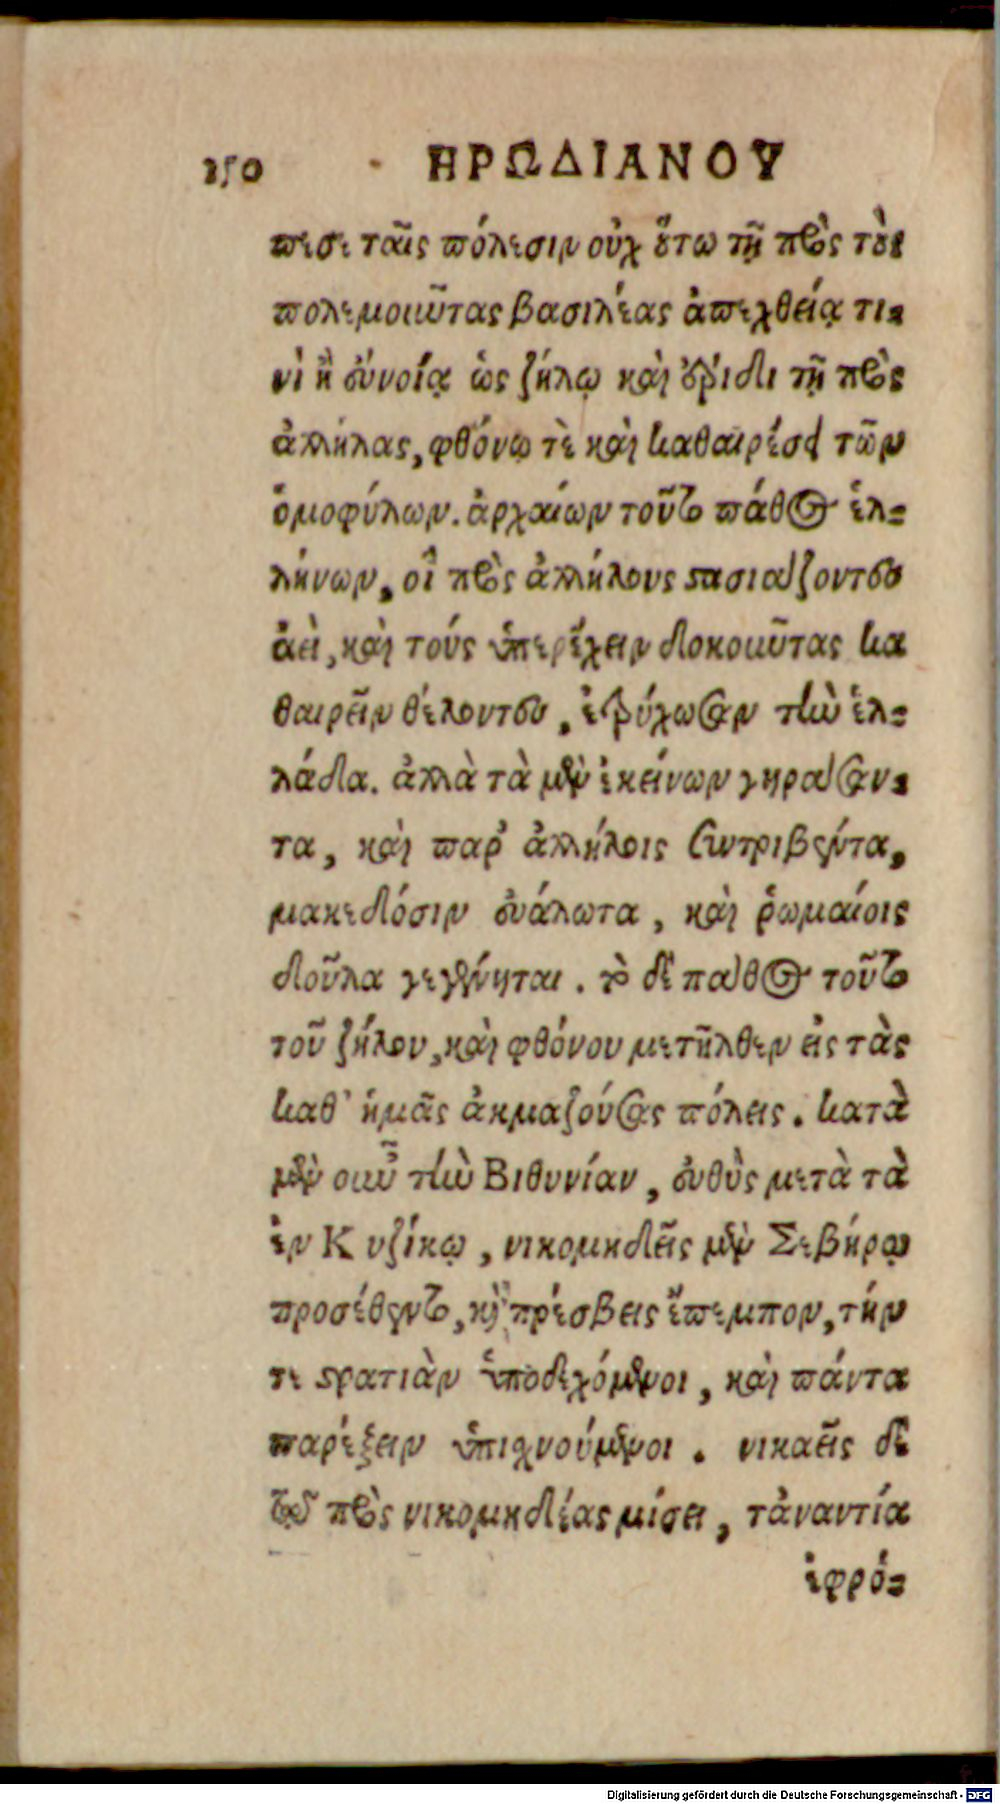 150 ΗΡΩΔΙΑΝΟΥ
πεσε ταῖς πόλεσιν οὐχ οὕτω τῇ πρὸς τοὺς
πολεμοῦντας βασιλέας ἀπεχθείᾳ τι-
νὶ ἢ εὐνοίᾳ ὡς ζήλῳ καὶ ἔριδι τῇ πρὸς
ἀλλήλας, φθόνῳ τὲ καὶ καθαιρέσει τῶν
ὁμοφύλων. ἀρχαίων τοῦτο πάθος ἑλ-
λήνων, οἳ πρὸς ἀλλήλους στασιάζοντες
ἀεὶ, καὶ τούς ὑπερέχειν δοκοῦντας κα
θαιρεῖν θέλοντες, ἐτρύχωσαν τὴν ἑλ-
λάδα. ἀλλὰ τὰ μὲν ἐκείνων γηράσαν-
τα, καὶ παρ' ἀλλήλοις συντριβέντα,
μακεδόσιν εὐάλωτα, καὶ ῥωμαίοις
δοῦλα γεγένηται. τὸ δὲ πάθος τοῦτο
τοῦ ζήλου, καὶ φθόνου μετῆλθεν εἰς τὰς
καθ' ἡμᾶς ἀκμαζούσας πόλεις. κατὰ
μὲν οὖν τὴν Βιθυνίαν, εὐθὺς μετὰ τὰ
ἐν Κυζίκῳ, νικομηδεῖς μὲν Σεβήρῳ
προσέθεντο, καὶ πρέσβεις ἔπεμπον, τήν
τε στρατιὰν ὑποδεχόμενοι, καὶ πάντα
παρέξειν ὑπιχνούμενοι. νικαεῖς δὲ
τῷ πρὸς νικομηδέας μίσει, τἀναντία
ἐφρό-
Digitalisierung gefördert durch die Deutsche Forschungsgemeinschaft - DFG